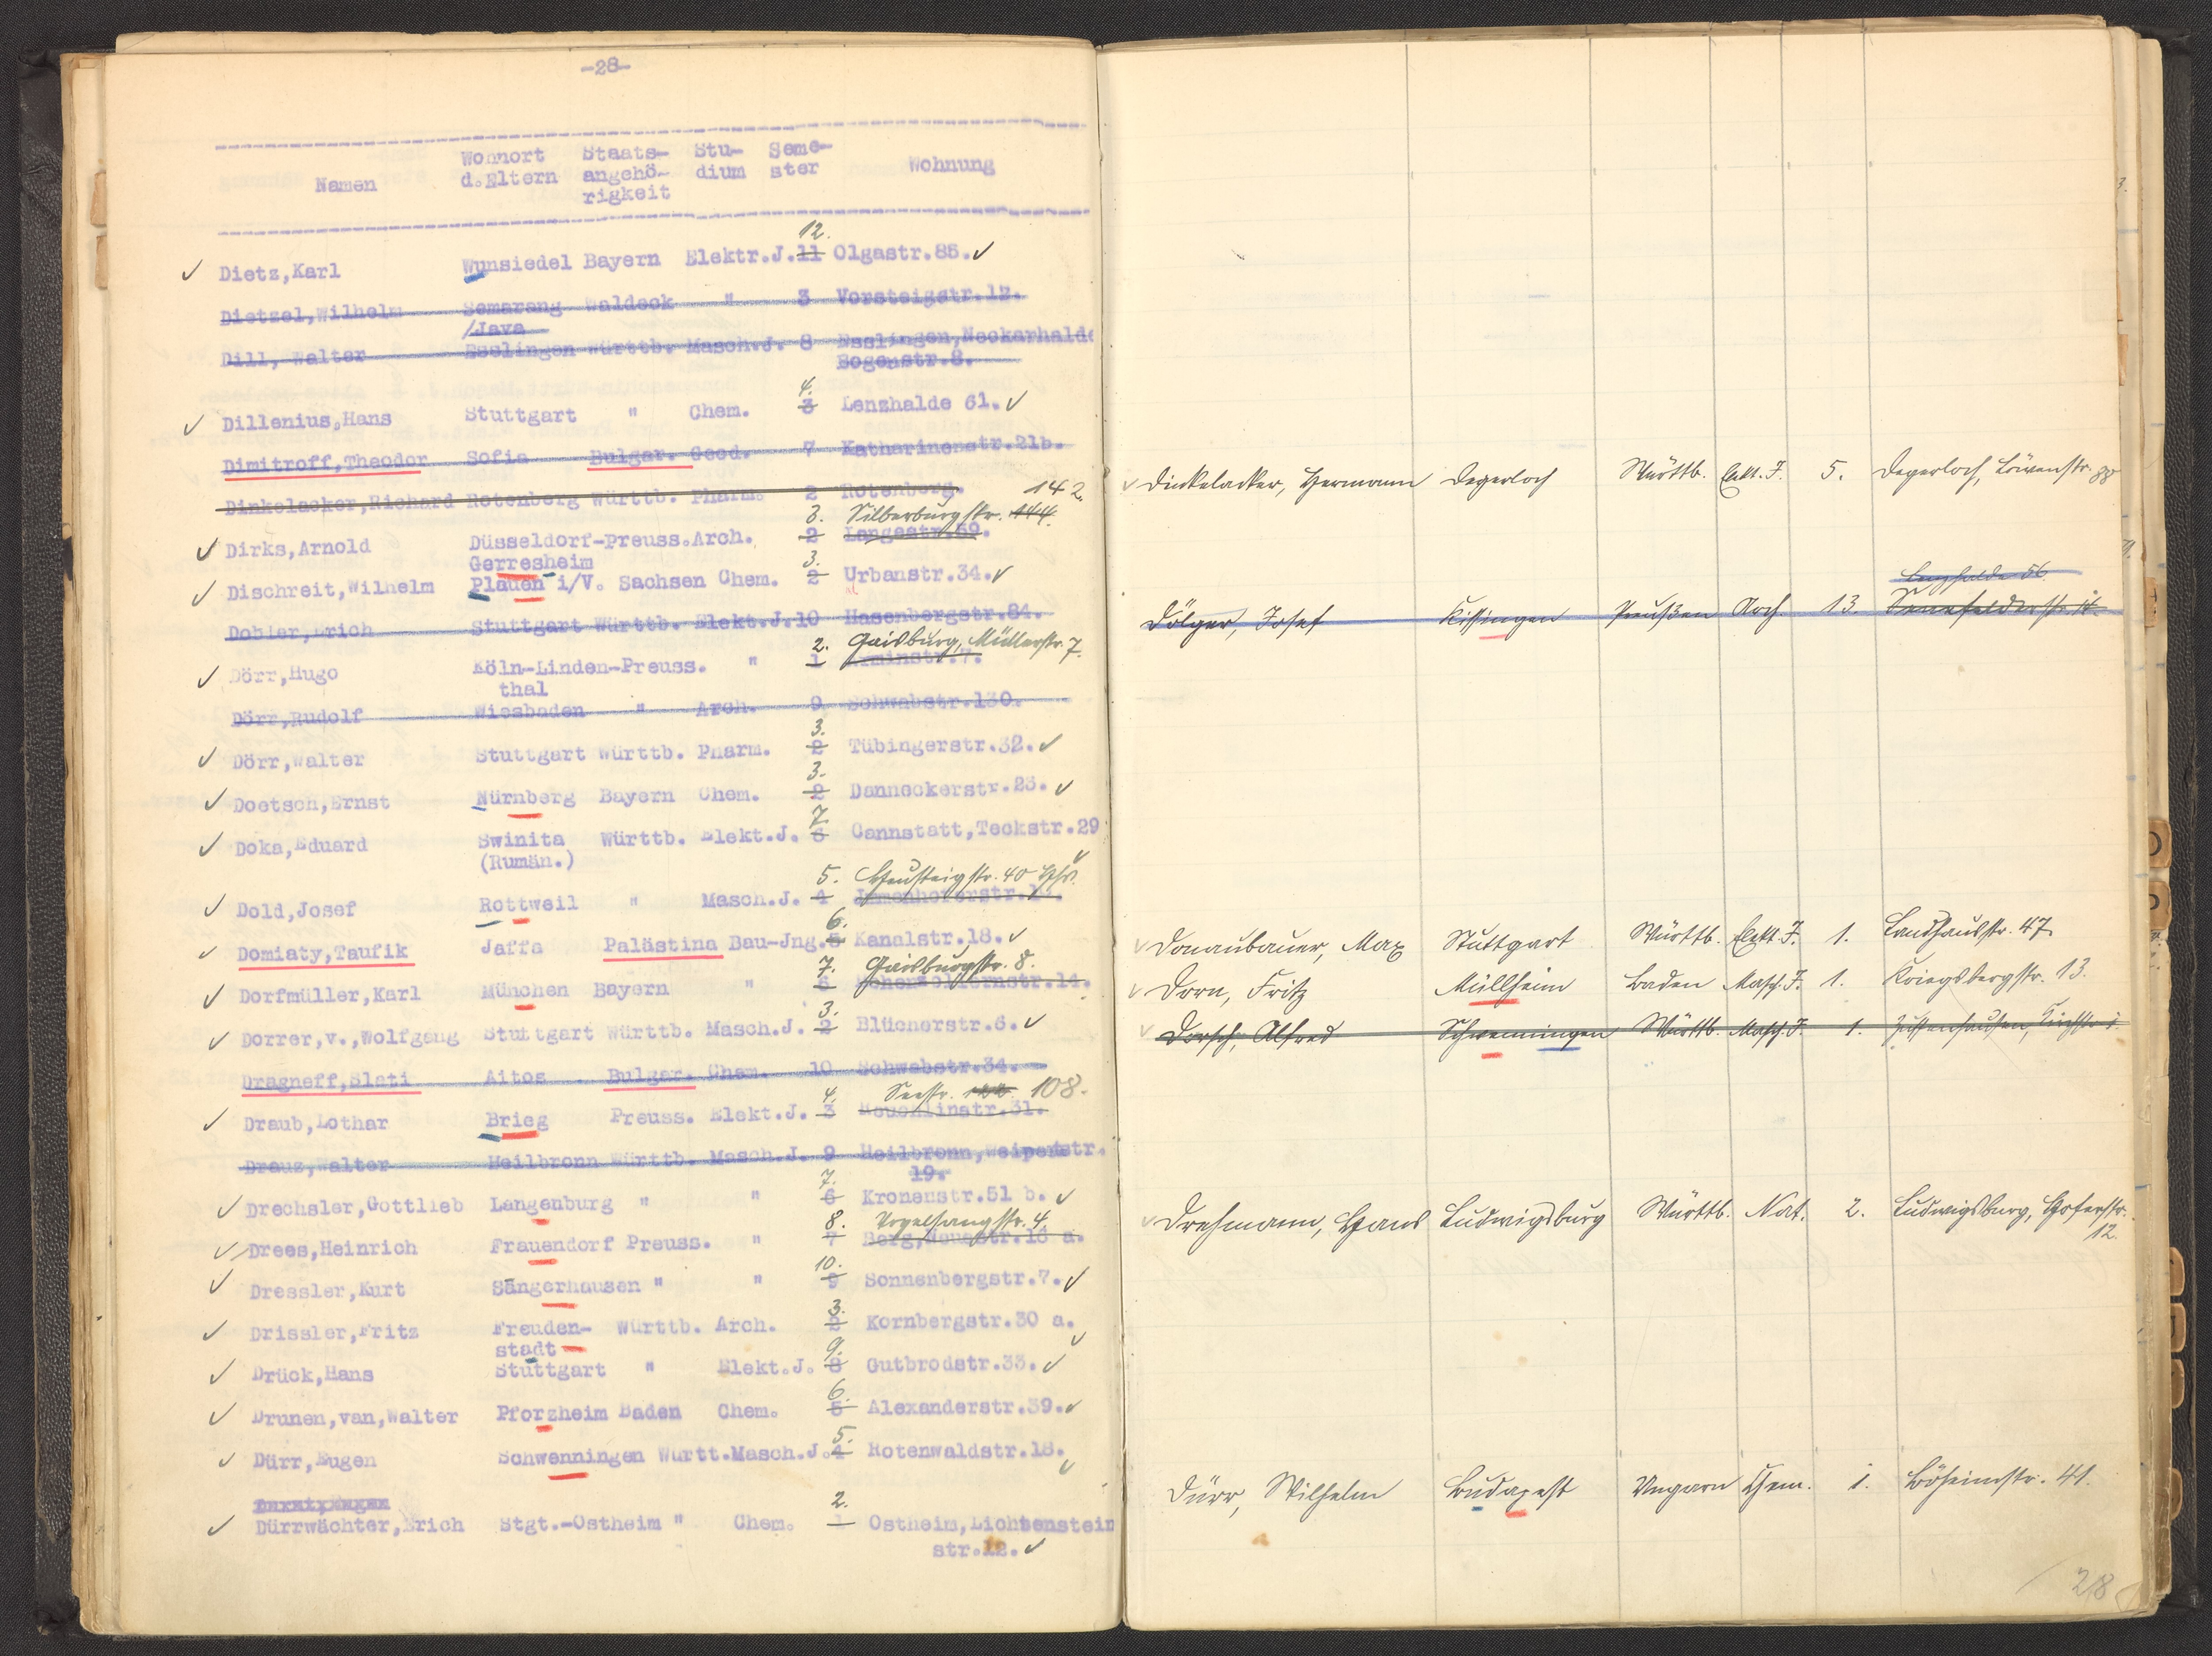 -28-
Namen Wohnort d.Eltern Staats-angehö-rigkeit Stu-dium Seme-ster Wohnung
12.
Dietz,Karl Wunsiedel Bayern Elektr.J. 11 Olgastr.85.
Dietzel,Wilhelm Semarang Waldeck " 3 Vorsteigstr.12.
/Java
Dill, Walter Esslingen Württb. Masch.J. 8 Esslingen,Neckarhalde
Bogenstr.8.
4.
Dillenius,Hans Stuttgart " Chem. 3 Lenzhalde 61.
Dimitroff,Theodor Sofia Bulgar. Geod. 7 Katharinenstr.21b.
Dinkelacker,Richard Rotenberg Württb. Pharm. 2 Rotenberg.
142.
3. Silberburgstr. 144.
Dirks,Arnold Düsseldorf-Preuss.Arch. 2 Langestr.59.
Gerresheim
3.
Dischreit,Wilhelm Plauen i/V. Sachsen Chem. 2 Urbanstr.34.
Dobler,Erich Stuttgart Württb. Elekt.J.10 Hasenbergstr.84.
2. Gaisburg, Müllerstr. 7.
Dörr,Hugo Köln-Linden-Preuss. " 1
thal
Dörr,Rudolf Wiesbaden " Arch. 9 Schwabstr.130.
3.
Dörr,Walter Stuttgart Württb. Pharm. 2 Tübingerstr.32.
3.
Doetsch,Ernst Nürnberg Bayern Chem. 2 Danneckerstr.23.
7.
Doka,Eduard Swinita Württb. Elekt.J. 6 Cannstatt,Teckstr.29
(Rumän.)
5. Heusteigstr. 40 Hhs.
Dold,Josef Rottweil " Masch.J. 4 Immenhoferstr.
6.
Domiaty,Taufik Jaffa Palästina Bau-Jng.5 Kanalstr.18.
7. Gaisburgstr. 8.
Dorfmüller,Karl München Bayern " 6 Hohenzollernstr.14.
3.
Dorrer,v.,Wolfgang Stuttgart Württb. Masch.J. 2 Blücherstr.6.
Dragneff,Slati Aitos Bulgar. Chem. 10 Schwabstr.34.
4. Seestr. 108.
Draub,Lothar Brieg Preuss. Elekt.J. 3 Reuchlinstr.31.
Drauz,Walter Heilbronn Württb. Masch.J. 9 Heilbronn,
19.
7.
Drechsler,Gottlieb Langenburg " " 6 Kronenstr.51 b.
8. Vogelsangstr. 4.
Drees,Heinrich Frauendorf Preuss. " 7 Berg,Neuestr.16 a.
10.
Dressler,Kurt Sängerhausen " " 9 Sonnenbergstr.7.
3.
Drissler,Fritz Freuden- Württb. Arch. 2 Kornbergstr.30 a.
stadt
9.
Drück,Hans Stuttgart " Elekt.J. 8 Gutbrodstr.33.
6.
Drunen,van,Walter Pforzheim Baden Chem. 5 Alexanderstr.39.
5.
Dürr,Eugen Schwenningen Württ.Masch.J.4 Rotenwaldstr.18.
2.
Dürrwächter,Erich Stgt.-Ostheim " Chem. 1 Ostheim,Lichtenstein
str.12.
Dinkelacker, Hermann Degerloch Württb. Elekt. J. 5. Degerloch, Löwenstr. 98
Lenzhalde 56.
Dölger, Josef Kissingen Preußen Arch. 13. Senefelderstr.
Donaubauer, Max Stuttgart Württb. Elekt. J. 1. Landhausstr. 47.
Dorn, Fritz Müllheim Baden Masch. J. 1. Kriegsbergstr. 13.
Dorsch, Alfred Schwenningen Württb. Masch. J. 1. Zuffenhausen,
Drehmann, Hans Ludwigsburg Württb. Nat. 2. Ludwigsburg, Hoferstr.
12.
Dürr, Wilhelm Budapest Ungarn Chem. 1. Böheimstr. 41.
28